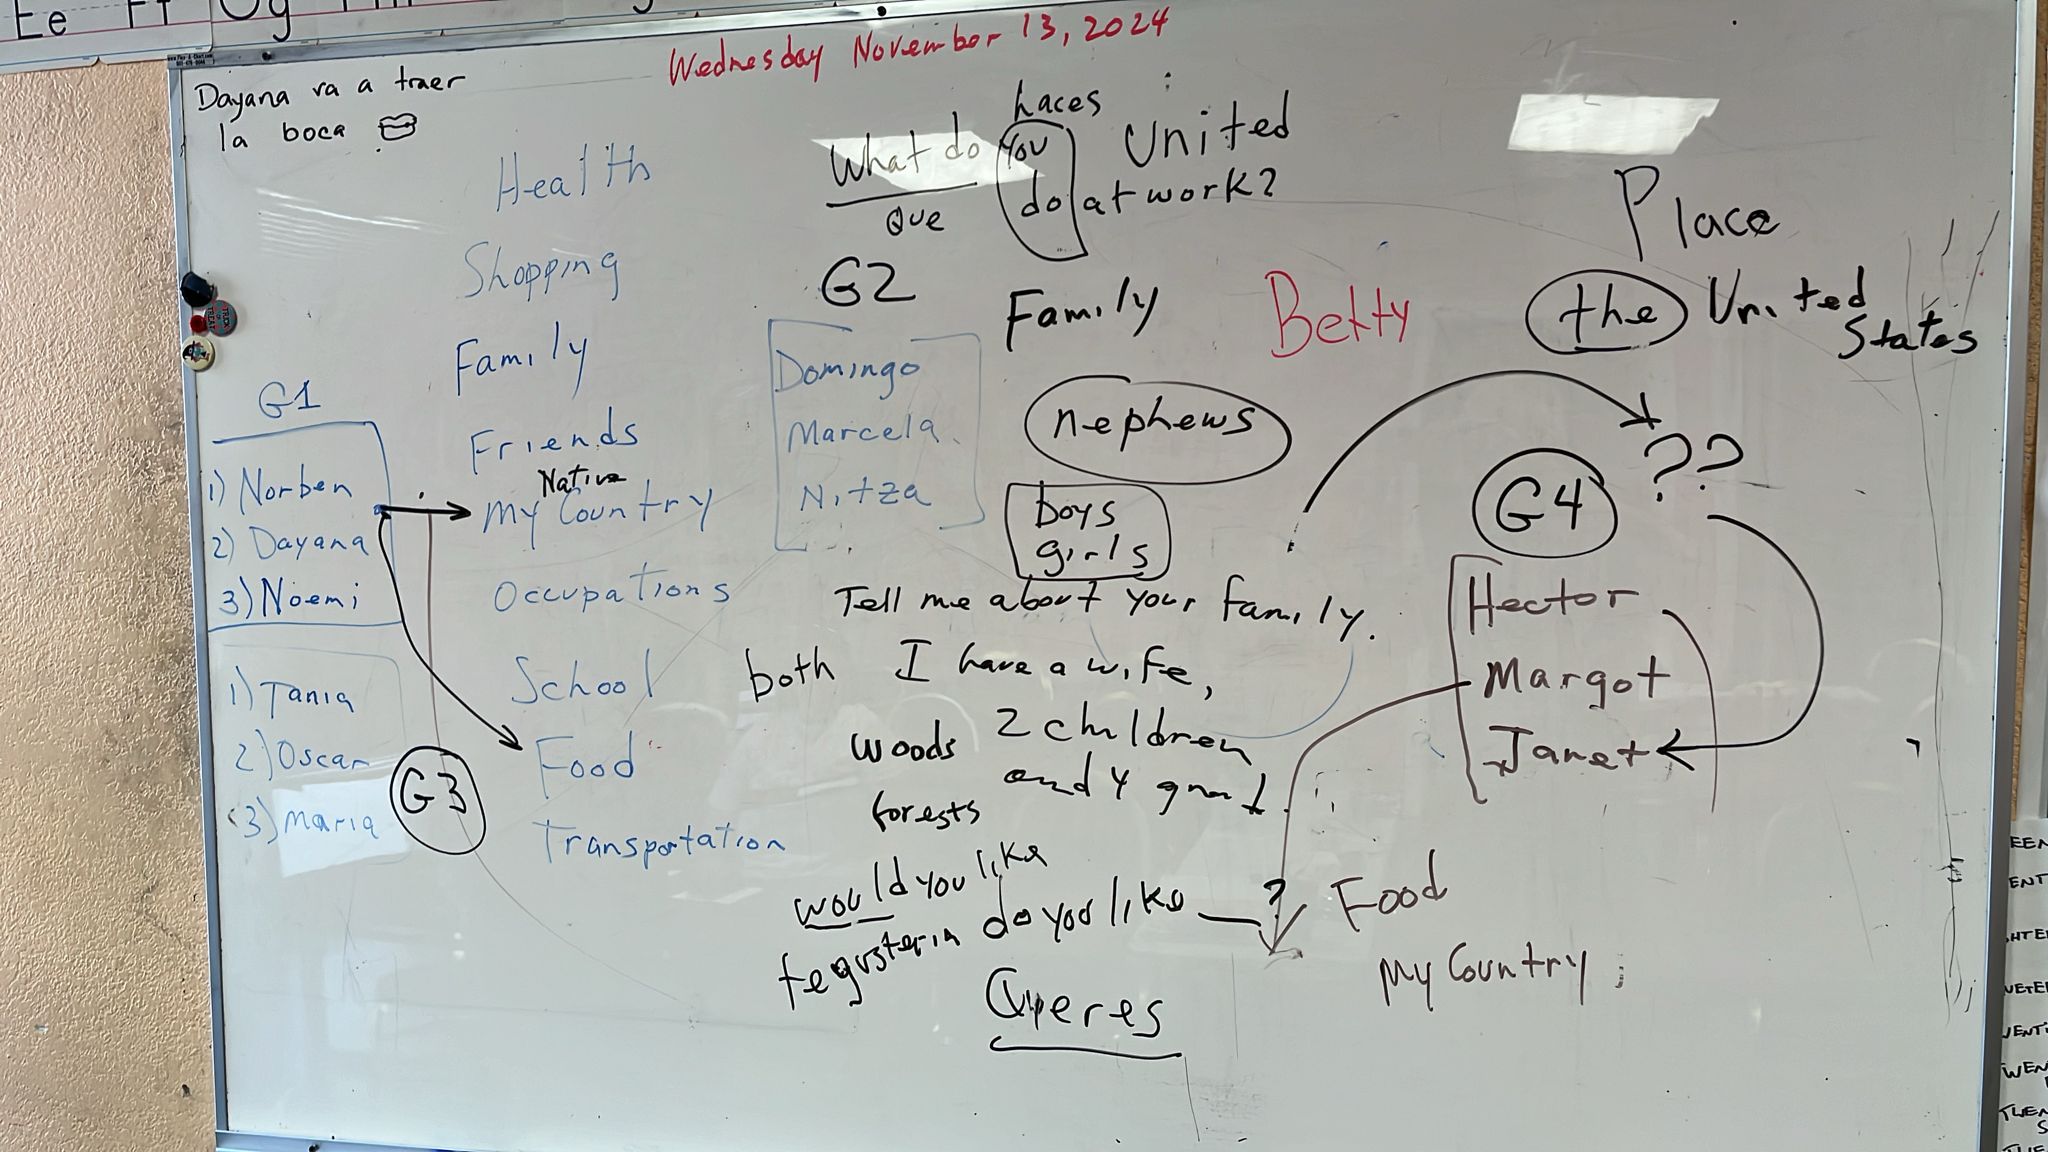 Ee Ff Gg
Wednesday November 13, 2024
Dayana va a traer
la boca
haces
What do you United
do at work?
Que
Health
Shopping
Family
Friends
Native
My Country
Occupations
School
Food
Transportation
G1
1) Norben
2) Dayana
3) Noemi
1) Tania
2) Oscar
3) Maria
G3
G2
Domingo
Marcela
Nitza
Family
nephews
boys
girls
Betty
Place
the United
States
??
G4
Hector
Margot
Janet
Tell me about your family.
both I have a wife,
woods 2 children
forests and 4
would you like
do you like ?
tegusteria
Queres
Food
My Country